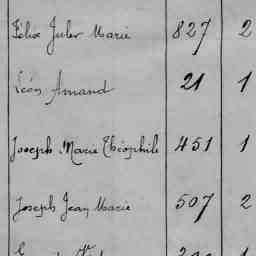 Félix Jules Marie 827 2
Léon Amand 21 1
Joseph Marie Théophile 451 1
Joseph Jean Marie 507 2